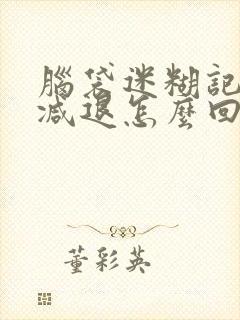 腦袋迷糊記
減退怎麼回
董彩英